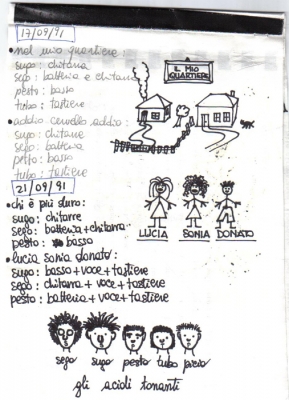 17/09/91
•nel mio quartiere:
sugo: chitarra
sego: batteria e chitarra
pesto: basso
tubo: tastiere
•addio cervello addio:
sugo: chitarre
sego: batteria
pesto: basso
tubo: tastiere
IL MIO
QUARTIERE
21/09/91
•chi è più duro:
sugo: chitarre
sego: batteria+chitarra
pesto: basso
•lucia sonia donato:
sugo: basso+voce+tastiere
sego: chitarra+voce+tastiere
pesto: batteria+voce+tastiere
LUCIA SONIA DONATO
sego sugo pesto tubo
gli acidi tonanti